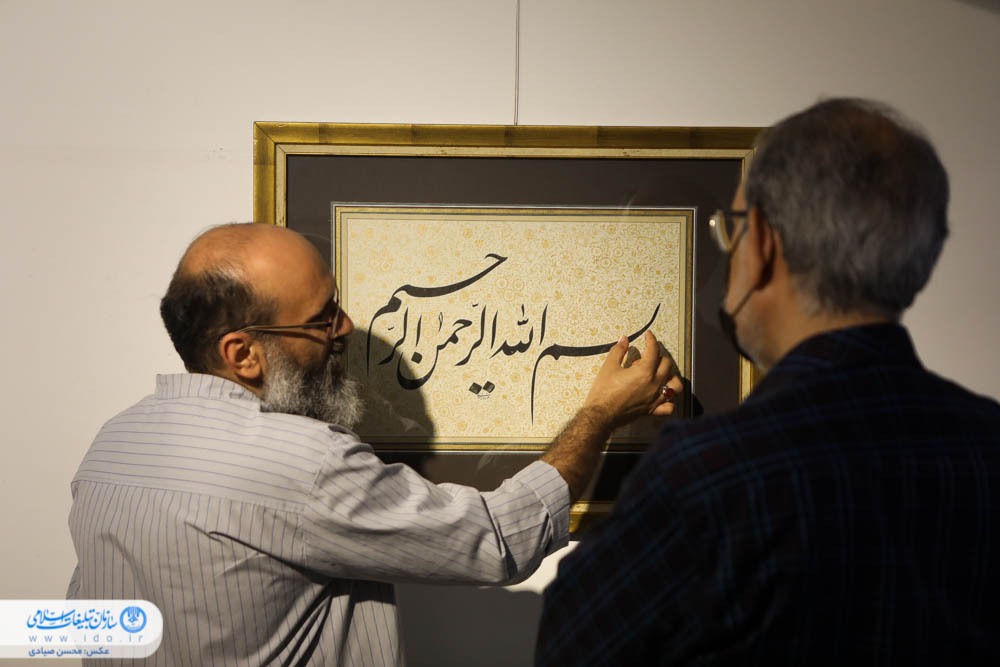 بسم الله الرّحمٰن الرّحیم
سازمان تبلیغات اسلامی
www.ido.ir
عکس: محسن صیادی